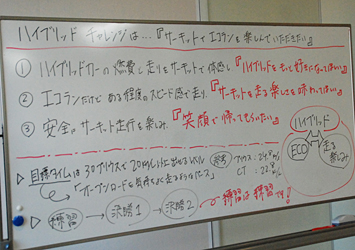 ハイブリッド チャレンジは…『サーキットでエコランを楽しんでいただきたい』
① ハイブリッドカーの燃費と走りをサーキットで体感し『ハイブリッドをもっと好きになってほしい』
② エコランだけど ある程度のスピード感で走り、『サーキットを走る楽しさを味わってほしい』
③ 安全にサーキット走行を楽しみ、『笑顔で帰ってもらいたい』
ハイブリッド
ECO
走る楽しみ
▷ 目標タイムは30プリウスで20km/L以上出せるレベル
参考 プリウス:24.8km/L
CT : 22.8km/L
「オープンロードを気持ちよく走るようなペース」
▷ 練習 → 決勝1 → 決勝2
練習は練習です!!